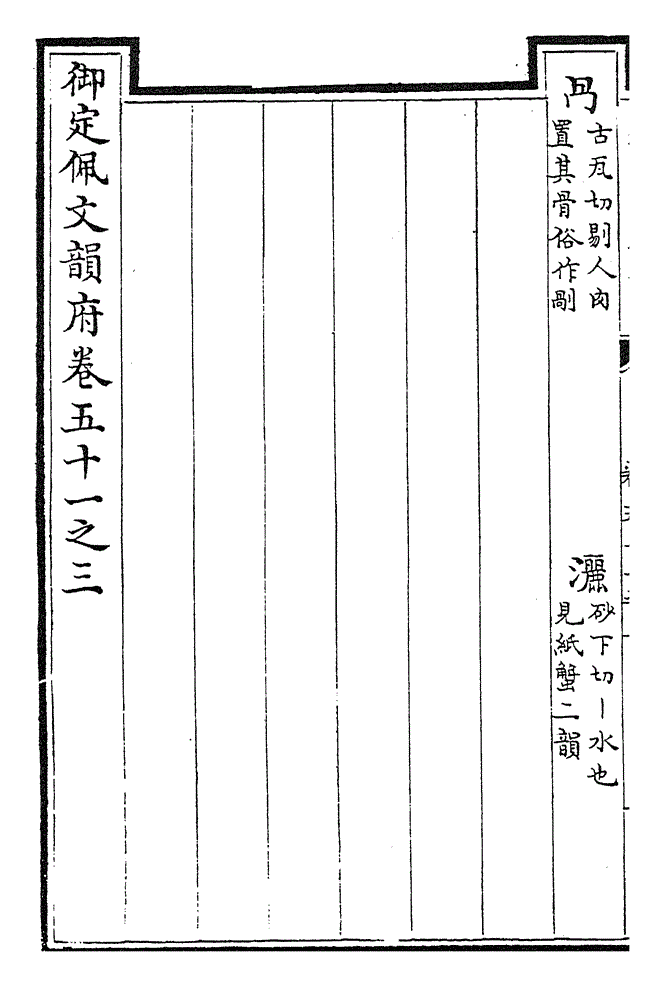 冎
古瓦切剔人肉
置其骨俗作剮
灑
砂下切丨水也
見紙蟹二韻
御定佩文韻府卷五十一之三